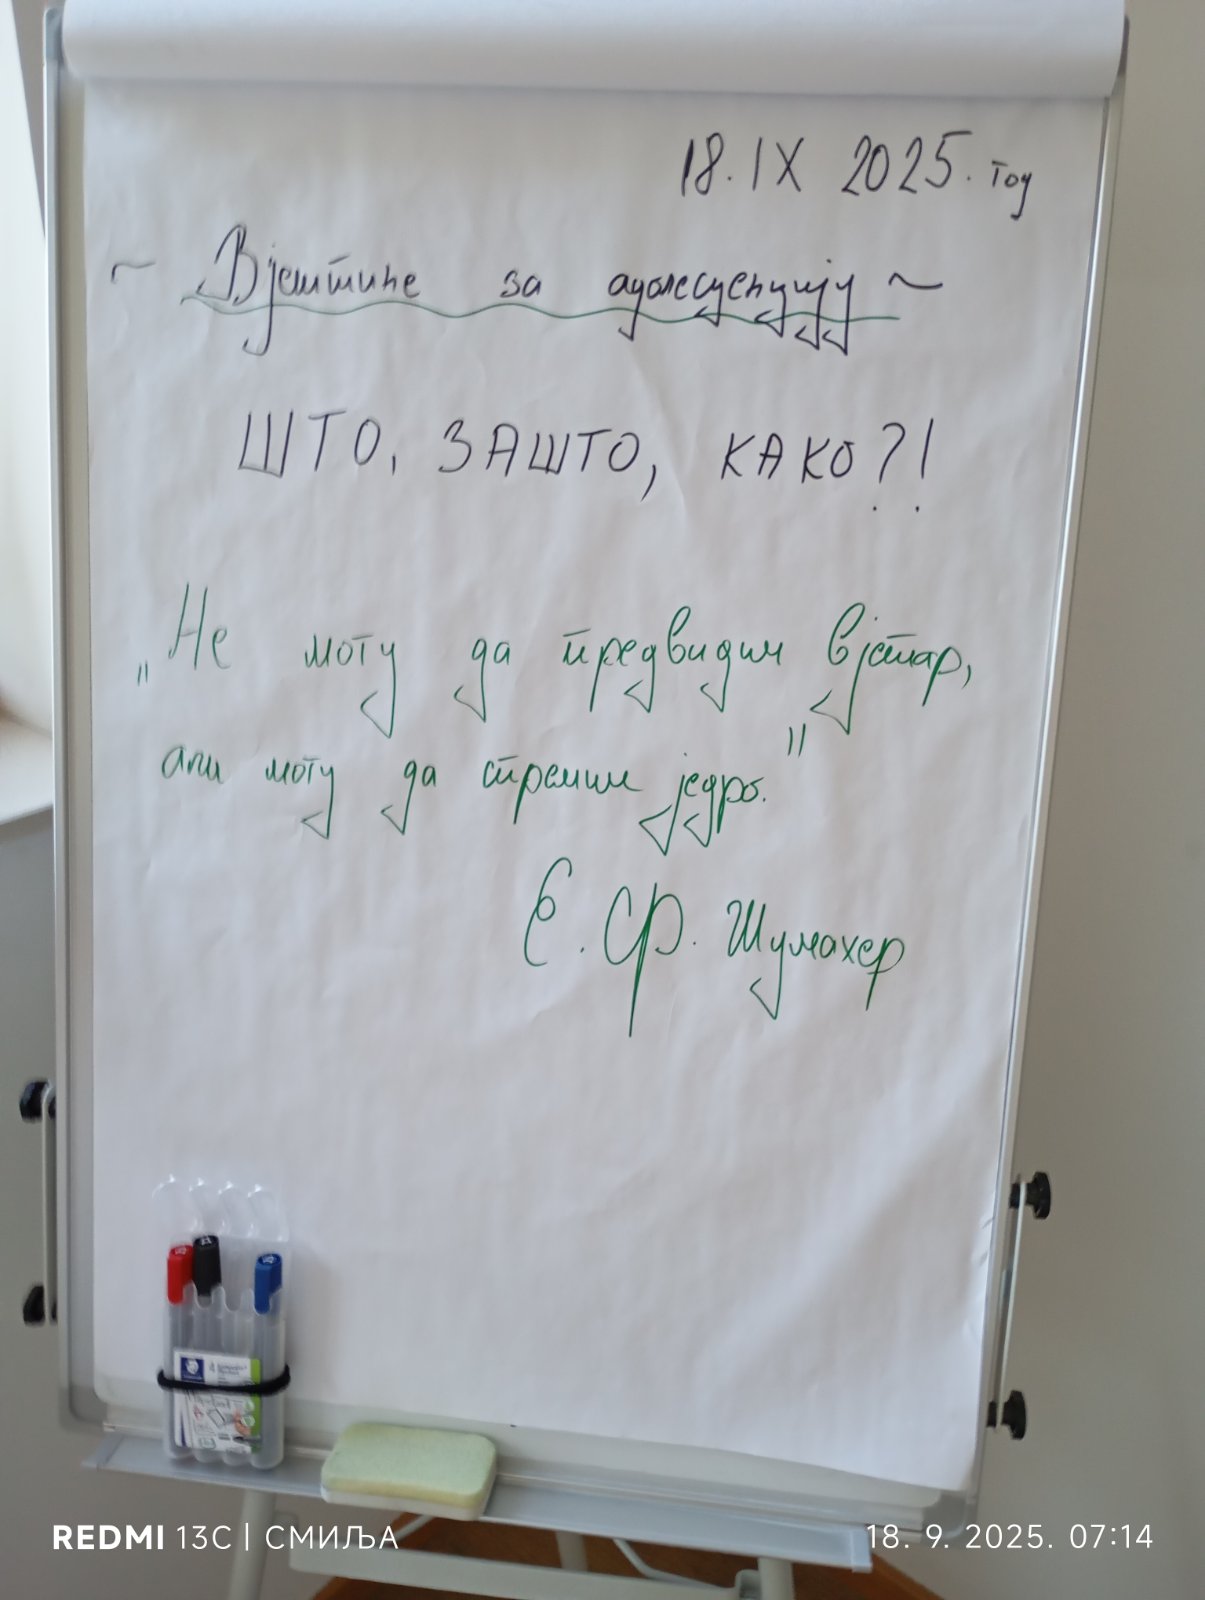 18. IX 2025. год
~ Вјештине за адолесценцију ~
ШТО, ЗАШТО, КАКО?!
„Не могу да предвидим вјетар,
али могу да стремим једро."
Е. Ф. Шумахер
REDMI 13C | СМИЉА
18. 9. 2025. 07:14